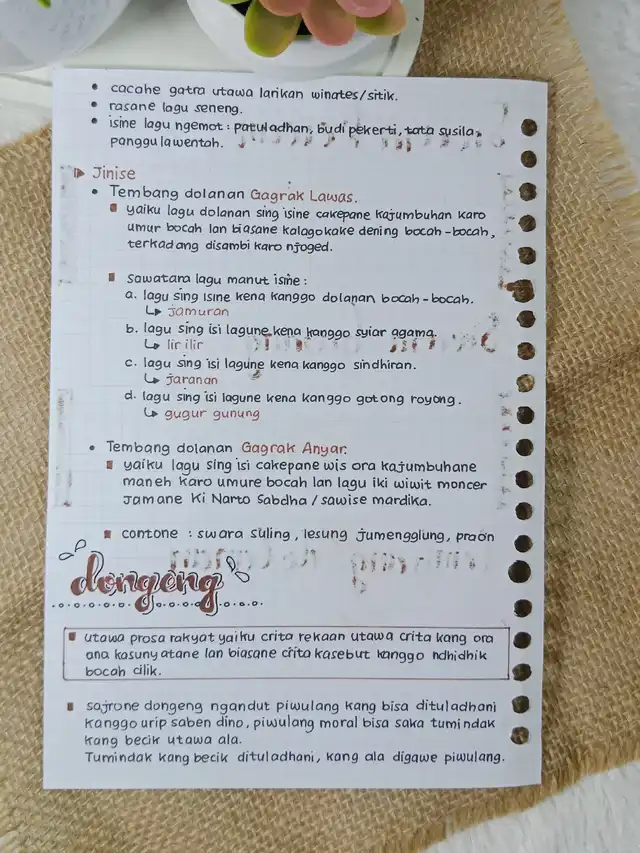 • cacahe gatra utawa larikan winates/sitik.
• rasane lagu seneng.
• isine lagu ngemot : patuladhan, budi pekerti, tata susila,
panggulawentah.
Jinise
• Tembang dolanan Gagrak Lawas.
yaiku lagu dolanan sing isine cakepane kajumbuhan karo
umur bocah lan biasane kalagokake dening bocah-bocah,
terkadang disambi karo njoged.
sawatara lagu manut isine :
a. lagu sing isine kena kanggo dolanan bocah-bocah.
↳ jamuran
b. lagu sing isi lagune kena kanggo syiar agama.
↳ lir ilir
c. lagu sing isi lagune kena kanggo sindhiran.
↳ jaranan
d. lagu sing isi lagune kena kanggo gotong royong.
↳ gugur gunung
• Tembang dolanan Gagrak Anyar.
yaiku lagu sing isi cakepane wis ora kajumbuhane
maneh karo umure bocah lan lagu iki wiwit moncer
jamane Ki Narto Sabdha / sawise mardika.
contone : swara suling, lesung jumengglung, praon
dongeng
utawa prosa rakyat yaiku crita rekaan utawa crita kang ora
ana kasunyatane lan biasane crita kasebut kanggo ndhidhik
bocah cilik.
sajrone dongeng ngandut piwulang kang bisa dituladhani
kanggo urip saben dino, piwulang moral bisa saka tumindak
kang becik utawa ala.
Tumindak kang becik dituladhani, kang ala digawe piwulang.